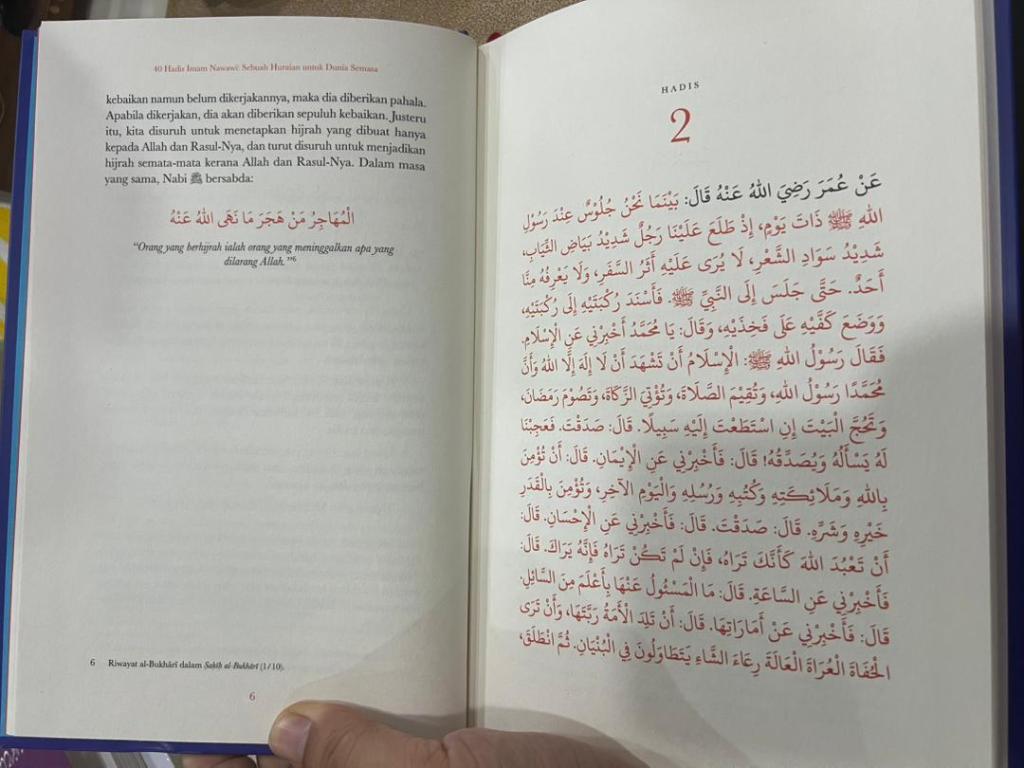 40 Hadis Imam Nawawi: Sebuah Huraian untuk Dunia Semasa
kebaikan namun belum dikerjakannya, maka dia diberikan pahala.
Apabila dikerjakan, dia akan diberikan sepuluh kebaikan. Justeru
itu, kita disuruh untuk menetapkan hijrah yang dibuat hanya
kepada Allah dan Rasul-Nya, dan turut disuruh untuk menjadikan
hijrah semata-mata kerana Allah dan Rasul-Nya. Dalam masa
yang sama, Nabi ﷺ bersabda:
الْمُهَاجِرُ مَنْ هَجَرَ مَا نَهَى اللهُ عَنْهُ
“Orang yang berhijrah ialah orang yang meninggalkan apa yang
dilarang Allah.”6
6 Riwayat al-Bukhārī dalam Ṣaḥīḥ al-Bukhārī (1/10).
6
HADIS
2
عَنْ عُمَرَ رَضِيَ اللهُ عَنْهُ قَالَ: بَيْنَمَا نَحْنُ جُلُوسٌ عِنْدَ رَسُولِ
اللهِ ﷺ ذَاتَ يَوْمٍ، إِذْ طَلَعَ عَلَيْنَا رَجُلٌ شَدِيْدُ بَيَاضِ الثِّيَابِ،
شَدِيْدُ سَوَادِ الشَّعْرِ، لَا يُرَى عَلَيْهِ أَثَرُ السَّفَرِ، وَلَا يَعْرِفُهُ مِنَّا
أَحَدٌ. حَتَّى جَلَسَ إِلَى النَّبِيِّ ﷺ. فَأَسْنَدَ رُكْبَتَيْهِ إِلَى رُكْبَتَيْهِ،
وَوَضَعَ كَفَّيْهِ عَلَى فَخِذَيْهِ، وَقَالَ: يَا مُحَمَّدُ أَخْبِرْنِي عَنِ الْإِسْلَامِ.
فَقَالَ رَسُوْلُ اللهِ ﷺ: الْإِسْلَامُ أَنْ تَشْهَدَ أَنْ لَا إِلَهَ إِلَّا اللهُ وَأَنَّ
مُحَمَّدًا رَسُوْلُ اللهِ، وَتُقِيْمَ الصَّلَاةَ، وَتُؤْتِيَ الزَّكَاةَ، وَتَصُوْمَ رَمَضَانَ،
وَتَحُجَّ الْبَيْتَ إِنِ اسْتَطَعْتَ إِلَيْهِ سَبِيلًا. قَالَ: صَدَقْتَ. فَعَجِبْنَا
لَهُ يَسْأَلُهُ وَيُصَدِّقُهُ! قَالَ: فَأَخْبِرْنِي عَنِ الْإِيْمَانِ. قَالَ: أَنْ تُؤْمِنَ
بِاللهِ وَمَلَائِكَتِهِ وَكُتُبِهِ وَرُسُلِهِ وَالْيَوْمِ الْآخِرِ، وَتُؤْمِنَ بِالْقَدَرِ
خَيْرِهِ وَشَرِّهِ. قَالَ: صَدَقْتَ. قَالَ: فَأَخْبِرْنِي عَنِ الْإِحْسَانِ. قَالَ:
أَنْ تَعْبُدَ اللهَ كَأَنَّكَ تَرَاهُ، فَإِنْ لَمْ تَكُنْ تَرَاهُ فَإِنَّهُ يَرَاكَ. قَالَ:
فَأَخْبِرْنِي عَنِ السَّاعَةِ. قَالَ: مَا الْمَسْئُولُ عَنْهَا بِأَعْلَمَ مِنَ السَّائِلِ.
قَالَ: فَأَخْبِرْنِي عَنْ أَمَارَاتِهَا. قَالَ: أَنْ تَلِدَ الْأَمَةُ رَبَّتَهَا، وَأَنْ تَرَى
الْحُفَاةَ الْعُرَاةَ الْعَالَةَ رِعَاءَ الشَّاءِ يَتَطَاوَلُونَ فِي الْبُنْيَانِ. ثُمَّ انْطَلَقَ،